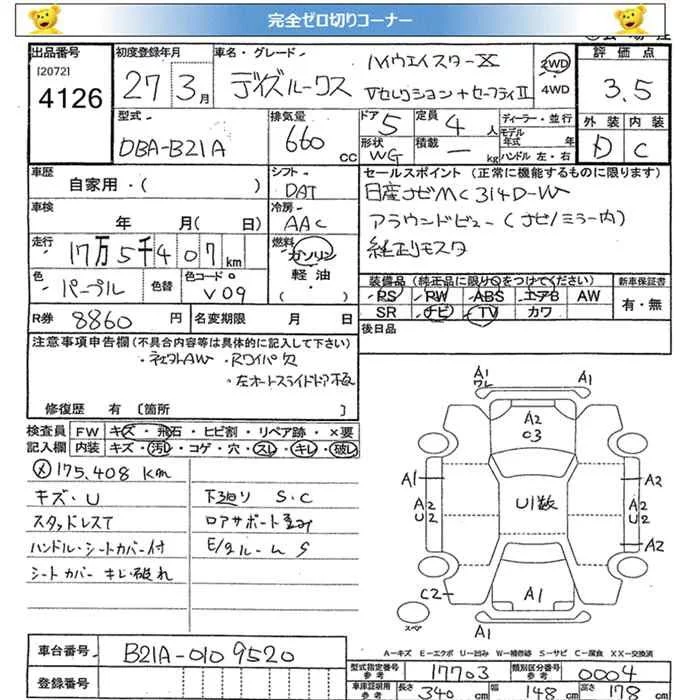 完全ゼロ切りコーナー
出品番号 初度登録年月 車名・グレード 評価点
[2072]
4126
27 3月 デイズルークス ハイウェイスターX 2WD 4WD 3.5
Vセレクション+セーフティII
型式 排気量 ドア 定員 ディーラー・並行 外装 内装
DBA-B21A 660 CC 5 4人 モデル年式 年 D C
形状 積載 ハンドル 左・右
WG ー kg
車歴 シフト セールスポイント (正常に機能するものに限ります)
自家用・( ) DAT 日産ナビMC314D-W
車検 年 月(日) 冷房 AAC アラウンドビュー(ナビ/ミラー内)
走行 17万5千407km 燃料 ガソリン 軽油・( ) 純正リモスタ
色 パープル 色替 色コードNo V09
装備品 (純正品に限り○をつけてください) 新車保証書
PS PW ABS エアB AW 有・無
SR ナビ TV カワ
R券 8860円 名変期限 月 日 後日品
注意事項申告欄(不具合内容等は具体的に記入して下さい)
・社外AW ・Rワイパ欠
・左オートスライドドア
修復歴 有 [箇所 ]
検査員 FW キズ・飛石・ヒビ割・リペア跡・×要
記入欄 内装 キズ・汚レ・コゲ・穴・スレ・キレ・破レ
175,408km
キズ・U 下廻り S.C
スタッドレスT ロアサポート歪み
ハンドル・シートカバー付 E/gルーム S
シートカバー キレ破れ
A1 A1
A2
03
A1 A2
A2 U2 U1数 A2 U2
A2
C2 A1
スペア A1
A-キズ E-エクボ U-凹み W-補修跡 S-サビ C-腐食 XX-交換済
車台番号 B21A-0109520
型式指定番号 参考 17703 類別区分番号 参考 0004
登録番号
車庫証明用 参考 長さ 340cm 幅 148cm 高さ 178cm